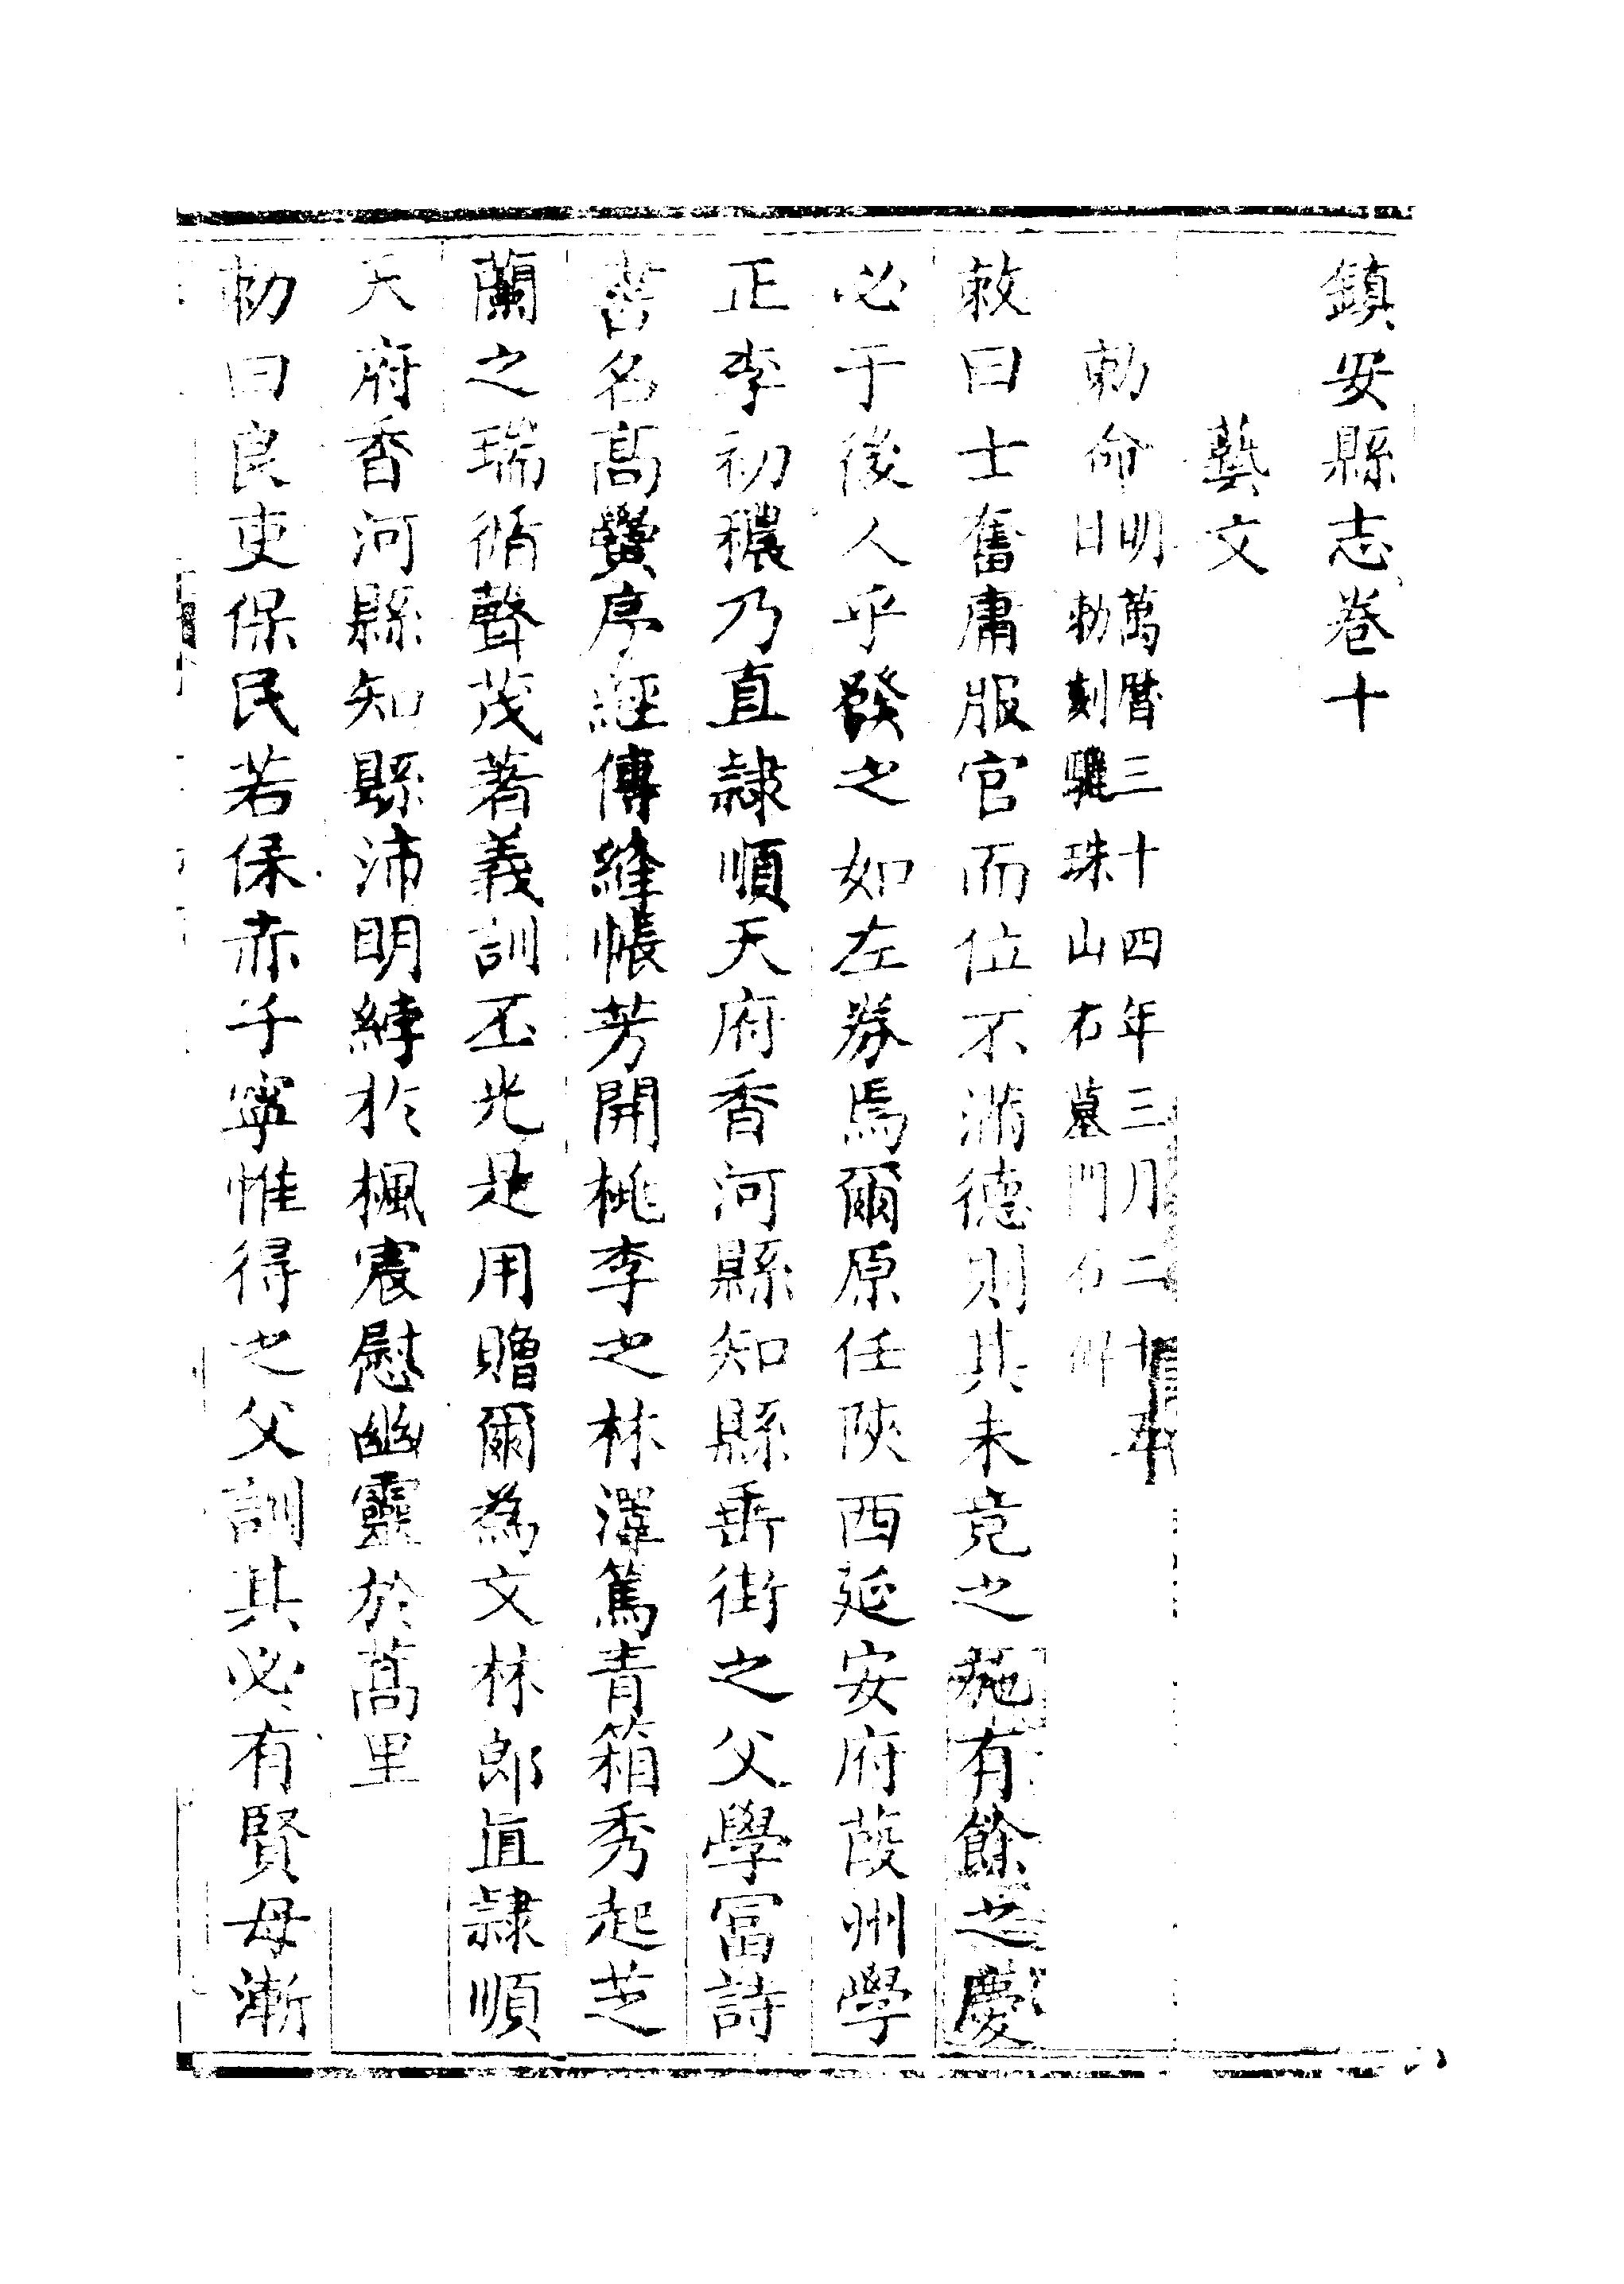 鎮安縣志卷十
藝文
勅命明萬曆三十四年三月二十
日勅刻驪珠山右墓門石
敕曰士奮庸服官而位不滿德則其未竟之施有餘之慶
必于後人乎發之如左券焉爾原任陝西延安府葭州學
正李初穠乃直隸順天府香河縣知縣垂街之父學冨詩
書名高黌序經傳絳帳芳開桃李之林澤篤青箱秀起芝
蘭之瑞循聲茂著義訓丕光是用贈爾為文林郎直隸順
天府香河縣知縣沛明綍於楓宸慰幽靈於蒿里
勅曰良吏保民若保赤子寧惟得之父訓其必有賢母漸